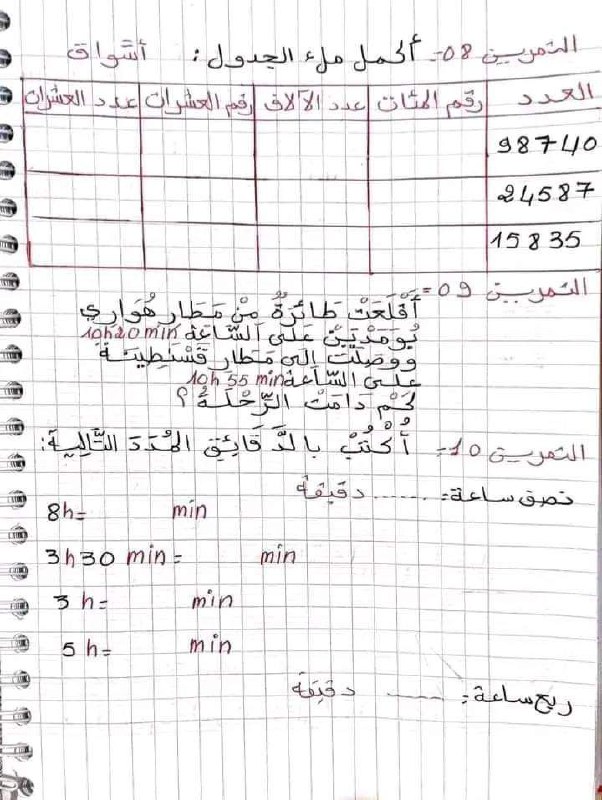 التمرين 08-: أكمل ملء الجدول: أشواق
العدد رقم المئات عدد الآلاف رقم العشرات عدد العشرات
98740
24587
15835
التمرين 09=
أَقْلَعَتْ طَائِرَةٌ مِنْ مَطَارِ هُوَارِي
بُومَدْيَنْ عَلَى السَّاعَة 10h20min
وَوَصَلَتْ إِلَى مَطَار قَسَنْطِينَة
عَلَى السَّاعَة 10h 55 min
كَمْ دَامَتْ الرِّحْلَةُ ؟
التمرين 10-: أُكْتُبْ بِالدَّقَائِقِ المُدَدَ التَّالِيَة:
نصف ساعة= ...... دقيقة
8h= min
3h30 min= min
3h= min
5h= min
ربع ساعة= ...... دقيقة